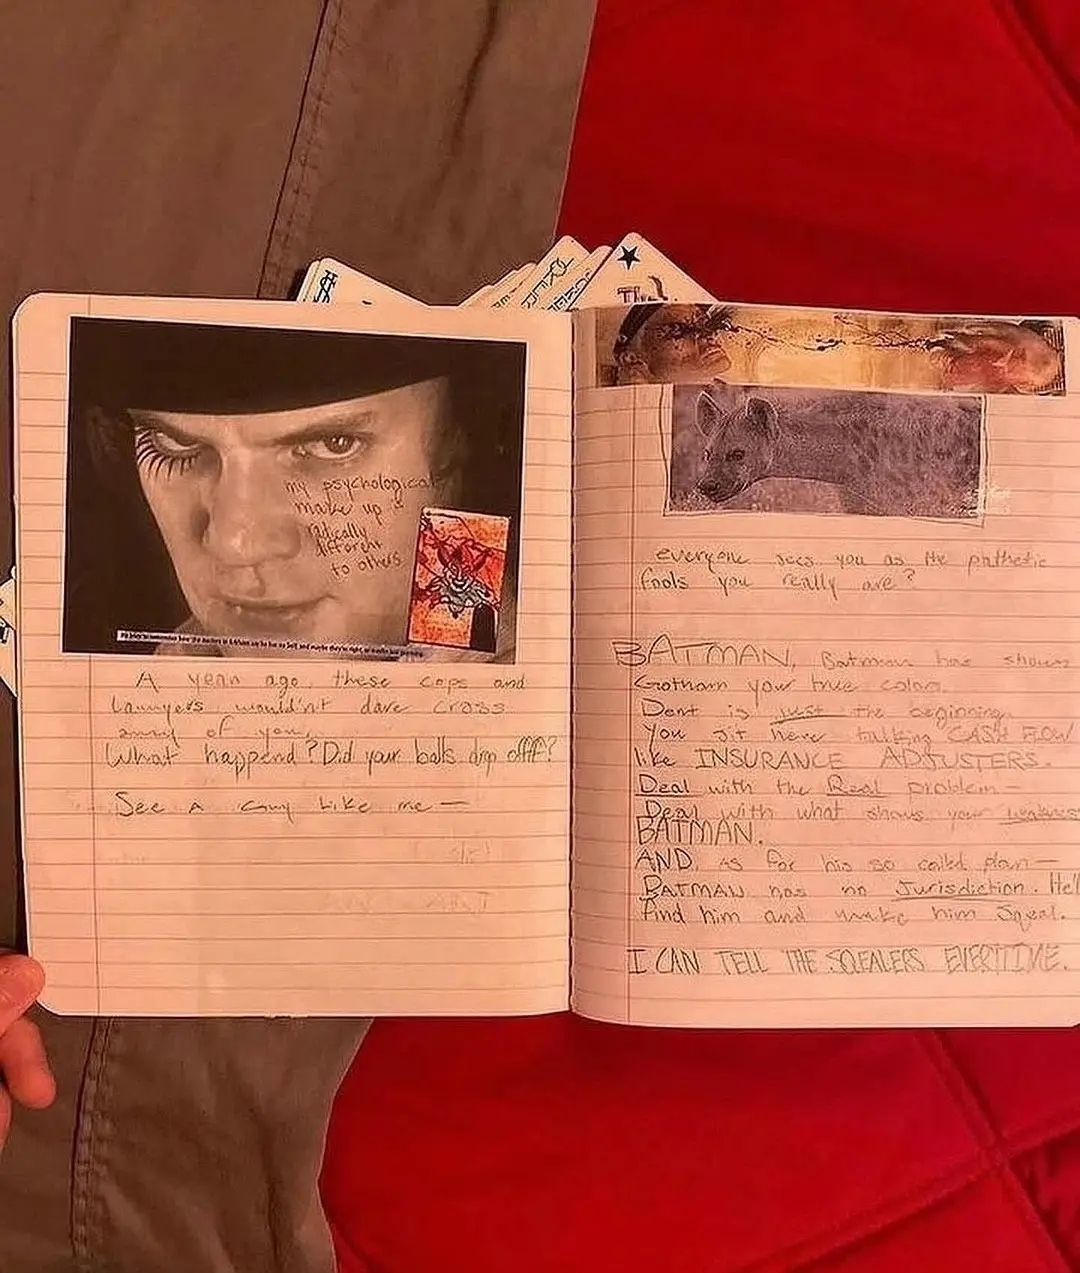 my psychological
make up is
radically
different
to others
A year ago, these cops and
lawyers wouldn't dare cross
any of you,
What happend? Did your balls drop offff?
See A Guy Like me —
everyone sees you as the pathetic
fools you really are?
BATMAN, Batman has shown
Gotham your true colors.
Dent is just the beginning.
You sit here talking CASH FLOW
like INSURANCE ADJUSTERS.
Deal with the Real problem —
Deal with what shows your weakness
BATMAN.
AND, as for his so called plan —
BATMAN has no Jurisdiction. He'll
find him and make him Squeal.
I CAN TELL THE SQEALERS EVERITIME.